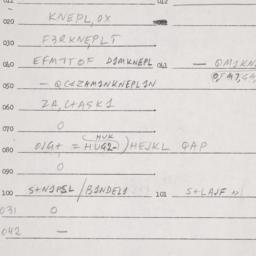 020 KNEPL,OX
030 F3RKNEPLT
040 EFMTTOF D1MKNEPL 041 — OM1KN
050 — QC<ZAM1NKNEPL1N
060 ZA, L+ASK1
070 O
HUK
080 O/G+ = HUG2-)HEJKL QAP
090 O
100 S+N1PSL/B1NDEL1 101 S+LAJF
031 O
042 —